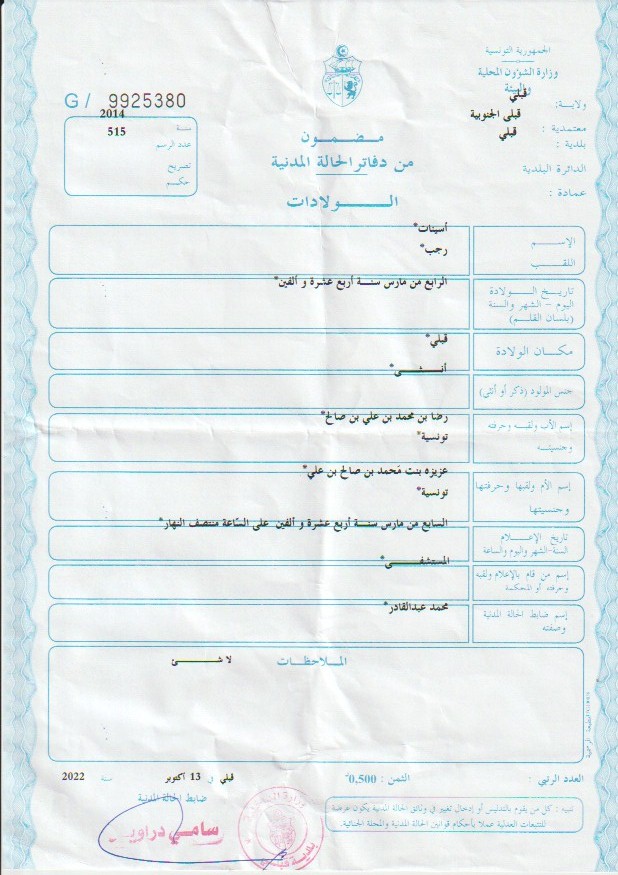 الجمهورية التونسية
وزارة الشؤون المحلية
والبيئة
ولاية: قبلي
معتمدية : قبلى الجنوبية
بلدية : قبلي
الدائرة البلدية
عمادة :
G/ 9925380
سنة 2014
عدد الرسم 515
تصريح
حكم
مضمون
من دفاتر الحالة المدنية
الولادات
الإسم أسينات*
اللقب رجب*
تاريخ الولادة
اليوم - الشهر والسنة
(بلسان القلم)
الرابع من مارس سنة أربع عشرة و ألفين*
مكان الولادة قبلي*
جنس المولود (ذكر أو أنثى) أنثى*
إسم الأب ولقبه وحرفته
وجنسيته
رضا بن محمد بن علي بن صالح*
تونسية*
إسم الأم ولقبها وحرفتها
وجنسيتها
عزيزه بنت محمد بن صالح بن علي*
تونسية*
تاريخ الإعلام
السنة-الشهر واليوم والساعة
السابع من مارس سنة أربع عشرة و ألفين على الساعة منتصف النهار*
إسم من قام بالإعلام ولقبه
وحرفته أو المحكمة
المستشفى*
إسم ضابط الحالة المدنية
وصفته
محمد عبدالقادر*
الملاحظات
لا شئ
العدد الرتبي :
الثمن : 0,500د
قبلي في 13 أكتوبر سنة 2022
ضابط الحالة المدنية
تنبيه : كل من يقوم بالتدليس أو إدخال تغيير في وثائق الحالة المدنية يكون عرضة
للتتبعات العدلية عملا بأحكام قوانين الحالة المدنية والمجلة الجنائية.
سامي دراويل
بلدية قبلي